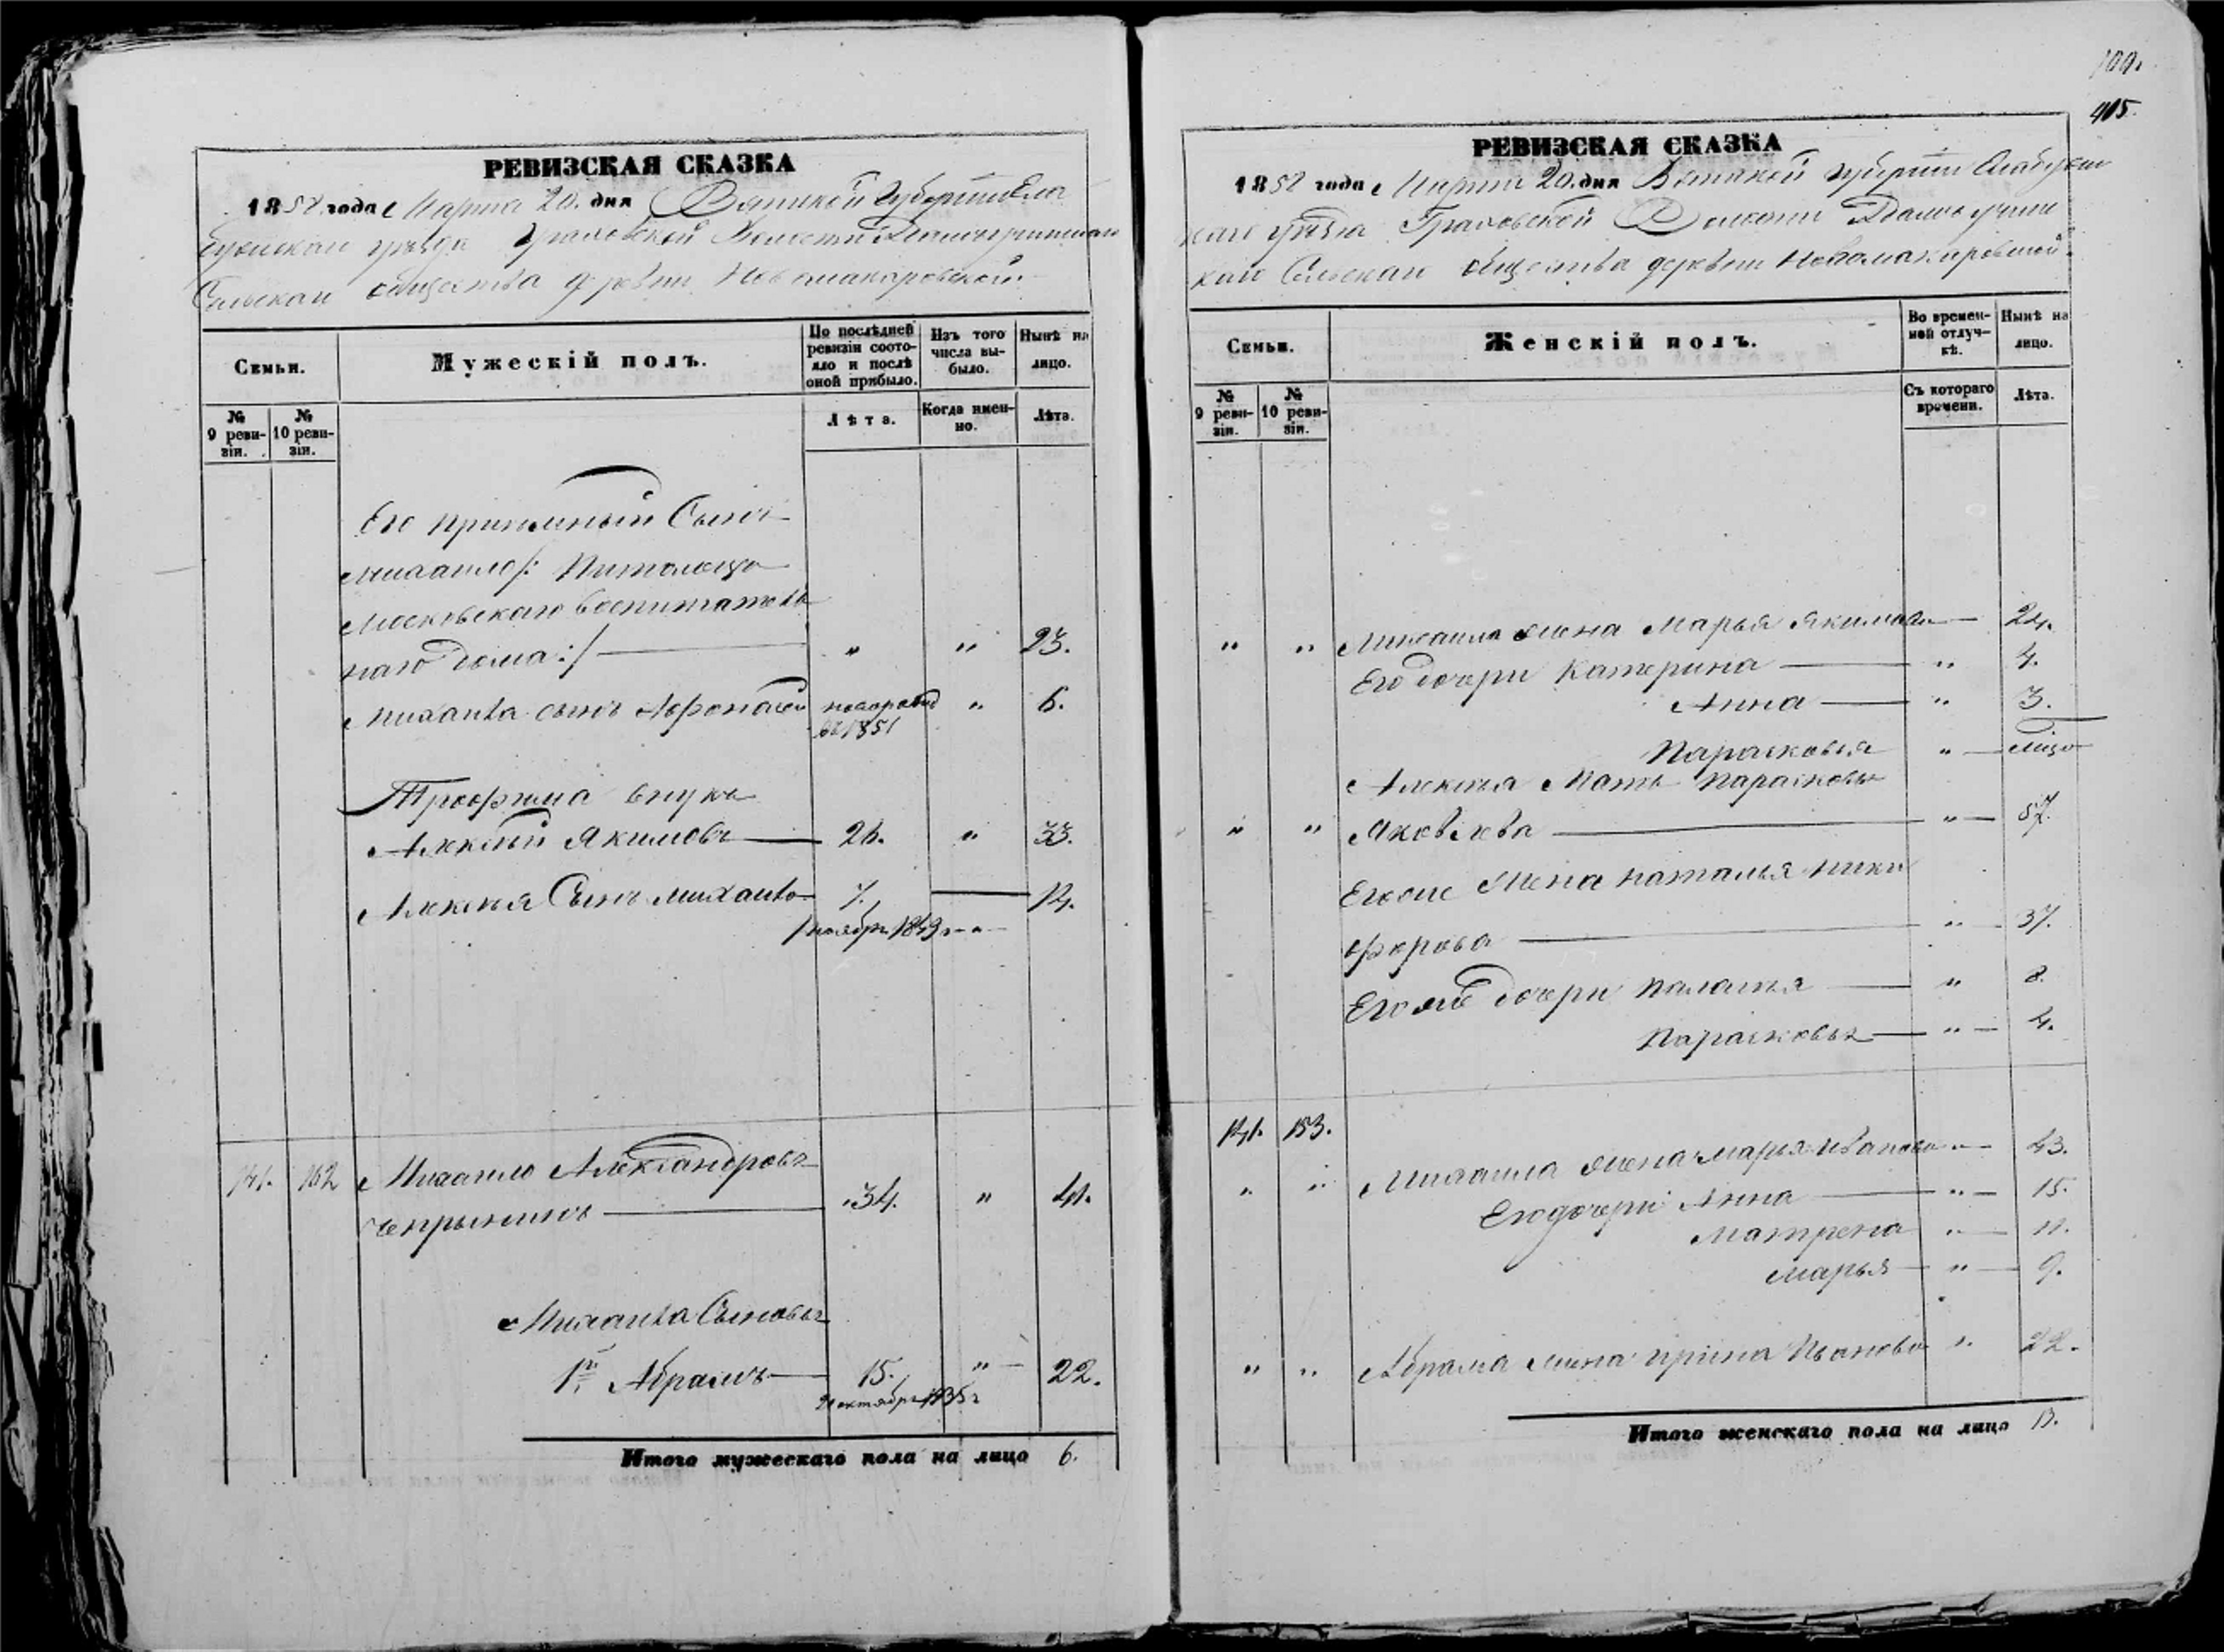 РЕВИЗСКАЯ СКАЗКА
1858 года Марта 20. дня Вятской Губернии Ела
бужскаго уѣзда Граховской Волости
Сельскаго общества деревни Новомакаровской
Семьи.
Мужескій полъ.
По послѣдней ревизіи состо-
яло и послѣ оной прибыло.
Изъ того числа вы-
было.
Нынѣ на лицо.
№ 9 реви-
зіи.
№ 10 реви-
зіи.
Лѣта.
Когда имен-
но.
Лѣта.
Его приемный Сынъ
Михаило /: Питомецъ
Московскаго воспитатель
наго дома :/ — " " 23.
Михаила сынъ Афонасей новорожд " 6.
въ 1851
Трофима внукъ
Алексѣй Якимовъ — 26. " 33.
Алексѣя Сынъ Михаило 7. — 14.
ноябр. 1849
141. 152 Михаило Александровъ
Чепрыгинъ — 34. " 41.
Михаила Сыновья
1й Абрамъ — 15. " 22.
октябр 1835 г
Итого мужескаго пола на лицо 6.
100.
405.
РЕВИЗСКАЯ СКАЗКА
1858 года Марта 20. дня Вятской Губерніи Елабужс
каго уѣзда Граховской Волости
каго Сельскаго общества деревни Новомакаровской.
Семьи.
Женскій полъ.
Во времен-
ной отлуч-
кѣ.
Нынѣ на лицо.
№ 9 реви-
зіи.
№ 10 реви-
зіи.
Съ котораго времени.
Лѣта.
" " Михаила жена Марья Якимова — 24.
Его дочери Катерина — " 4.
Анна — " 3.
Парасковья " —
Алексѣя Мать Парасковья
" " Яковлева — " — 57.
Егоже Жена Наталья Ники
форова — " 37.
Егоже дочери Палагея — " 8.
Парасковья — " — 4.
141. 153.
" " Михаила жена Марья Иванова " — 43.
Его дочери Анна — " — 15.
Матрена " — 11.
Марья — " — 9.
" " Абрама жена Ирина Иванова " 22.
Итого женскаго пола на лицо 13.